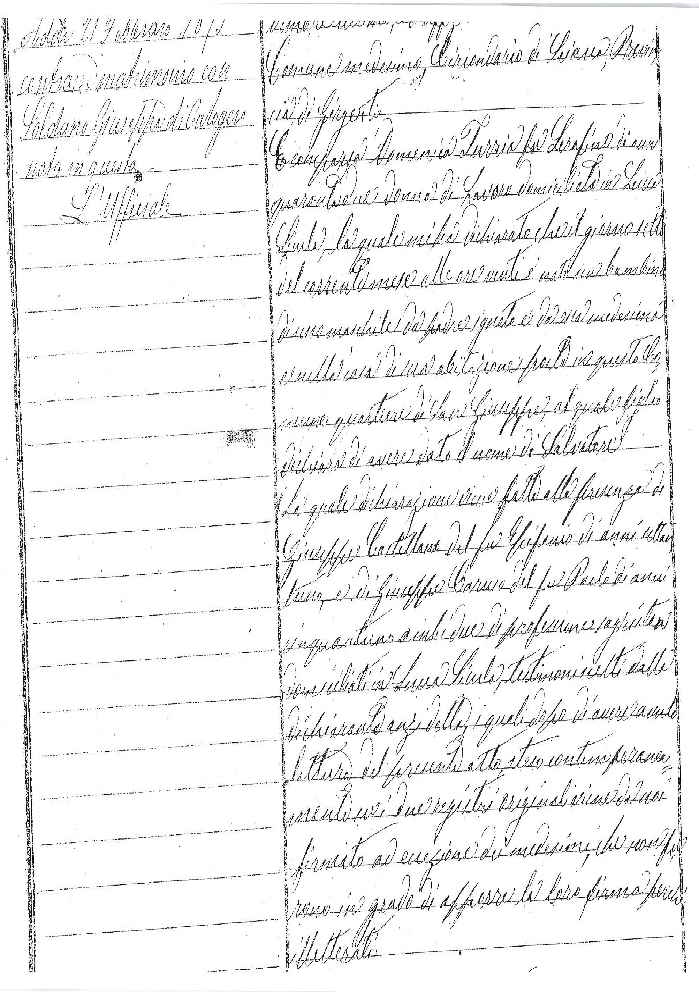 Addì 21 Febbraro 18
contrasse matrimonio con
Saldano Giuseppa di Calogero
nata in questa
L'Uffiziale
Comune medesimo, Circondario di Sciacca, Provin
cia di Girgenti
È comparsa Domenica Turzia fu Serafino di anni
quarantadue donna di Lavoro domiciliata in Lucca
Sicula, la quale mi ha dichiarato che il giorno sette
del corrente mese alle ore venti è nato un bambino
di sesso maschile da padre ignoto e da essa medesima
e nella casa di sua abitazione posta in questo Co
mune quartiere di San Giuseppe, al quale figlio
dichiara di avere dato il nome di Salvatore
La quale dichiarazione viene fatta alla presenza di
Giuseppe Castellano del fu Epifanio di anni settan
tuno, e di Giuseppe Caruso del fu Paolo di anni
cinquantuno ambidue di professione sagristani
domiciliati in Lucca Sicula, testimoni scelti dalla
dichiarante anzidetta, i quali dopo di avere avuto
lettura del presente atto steso contemporanea-
mente sui due registri originali viene da noi
firmato ad eccezione dei medesimi, che non fu
rono in grado di apporre la loro firma perchè
illetterati